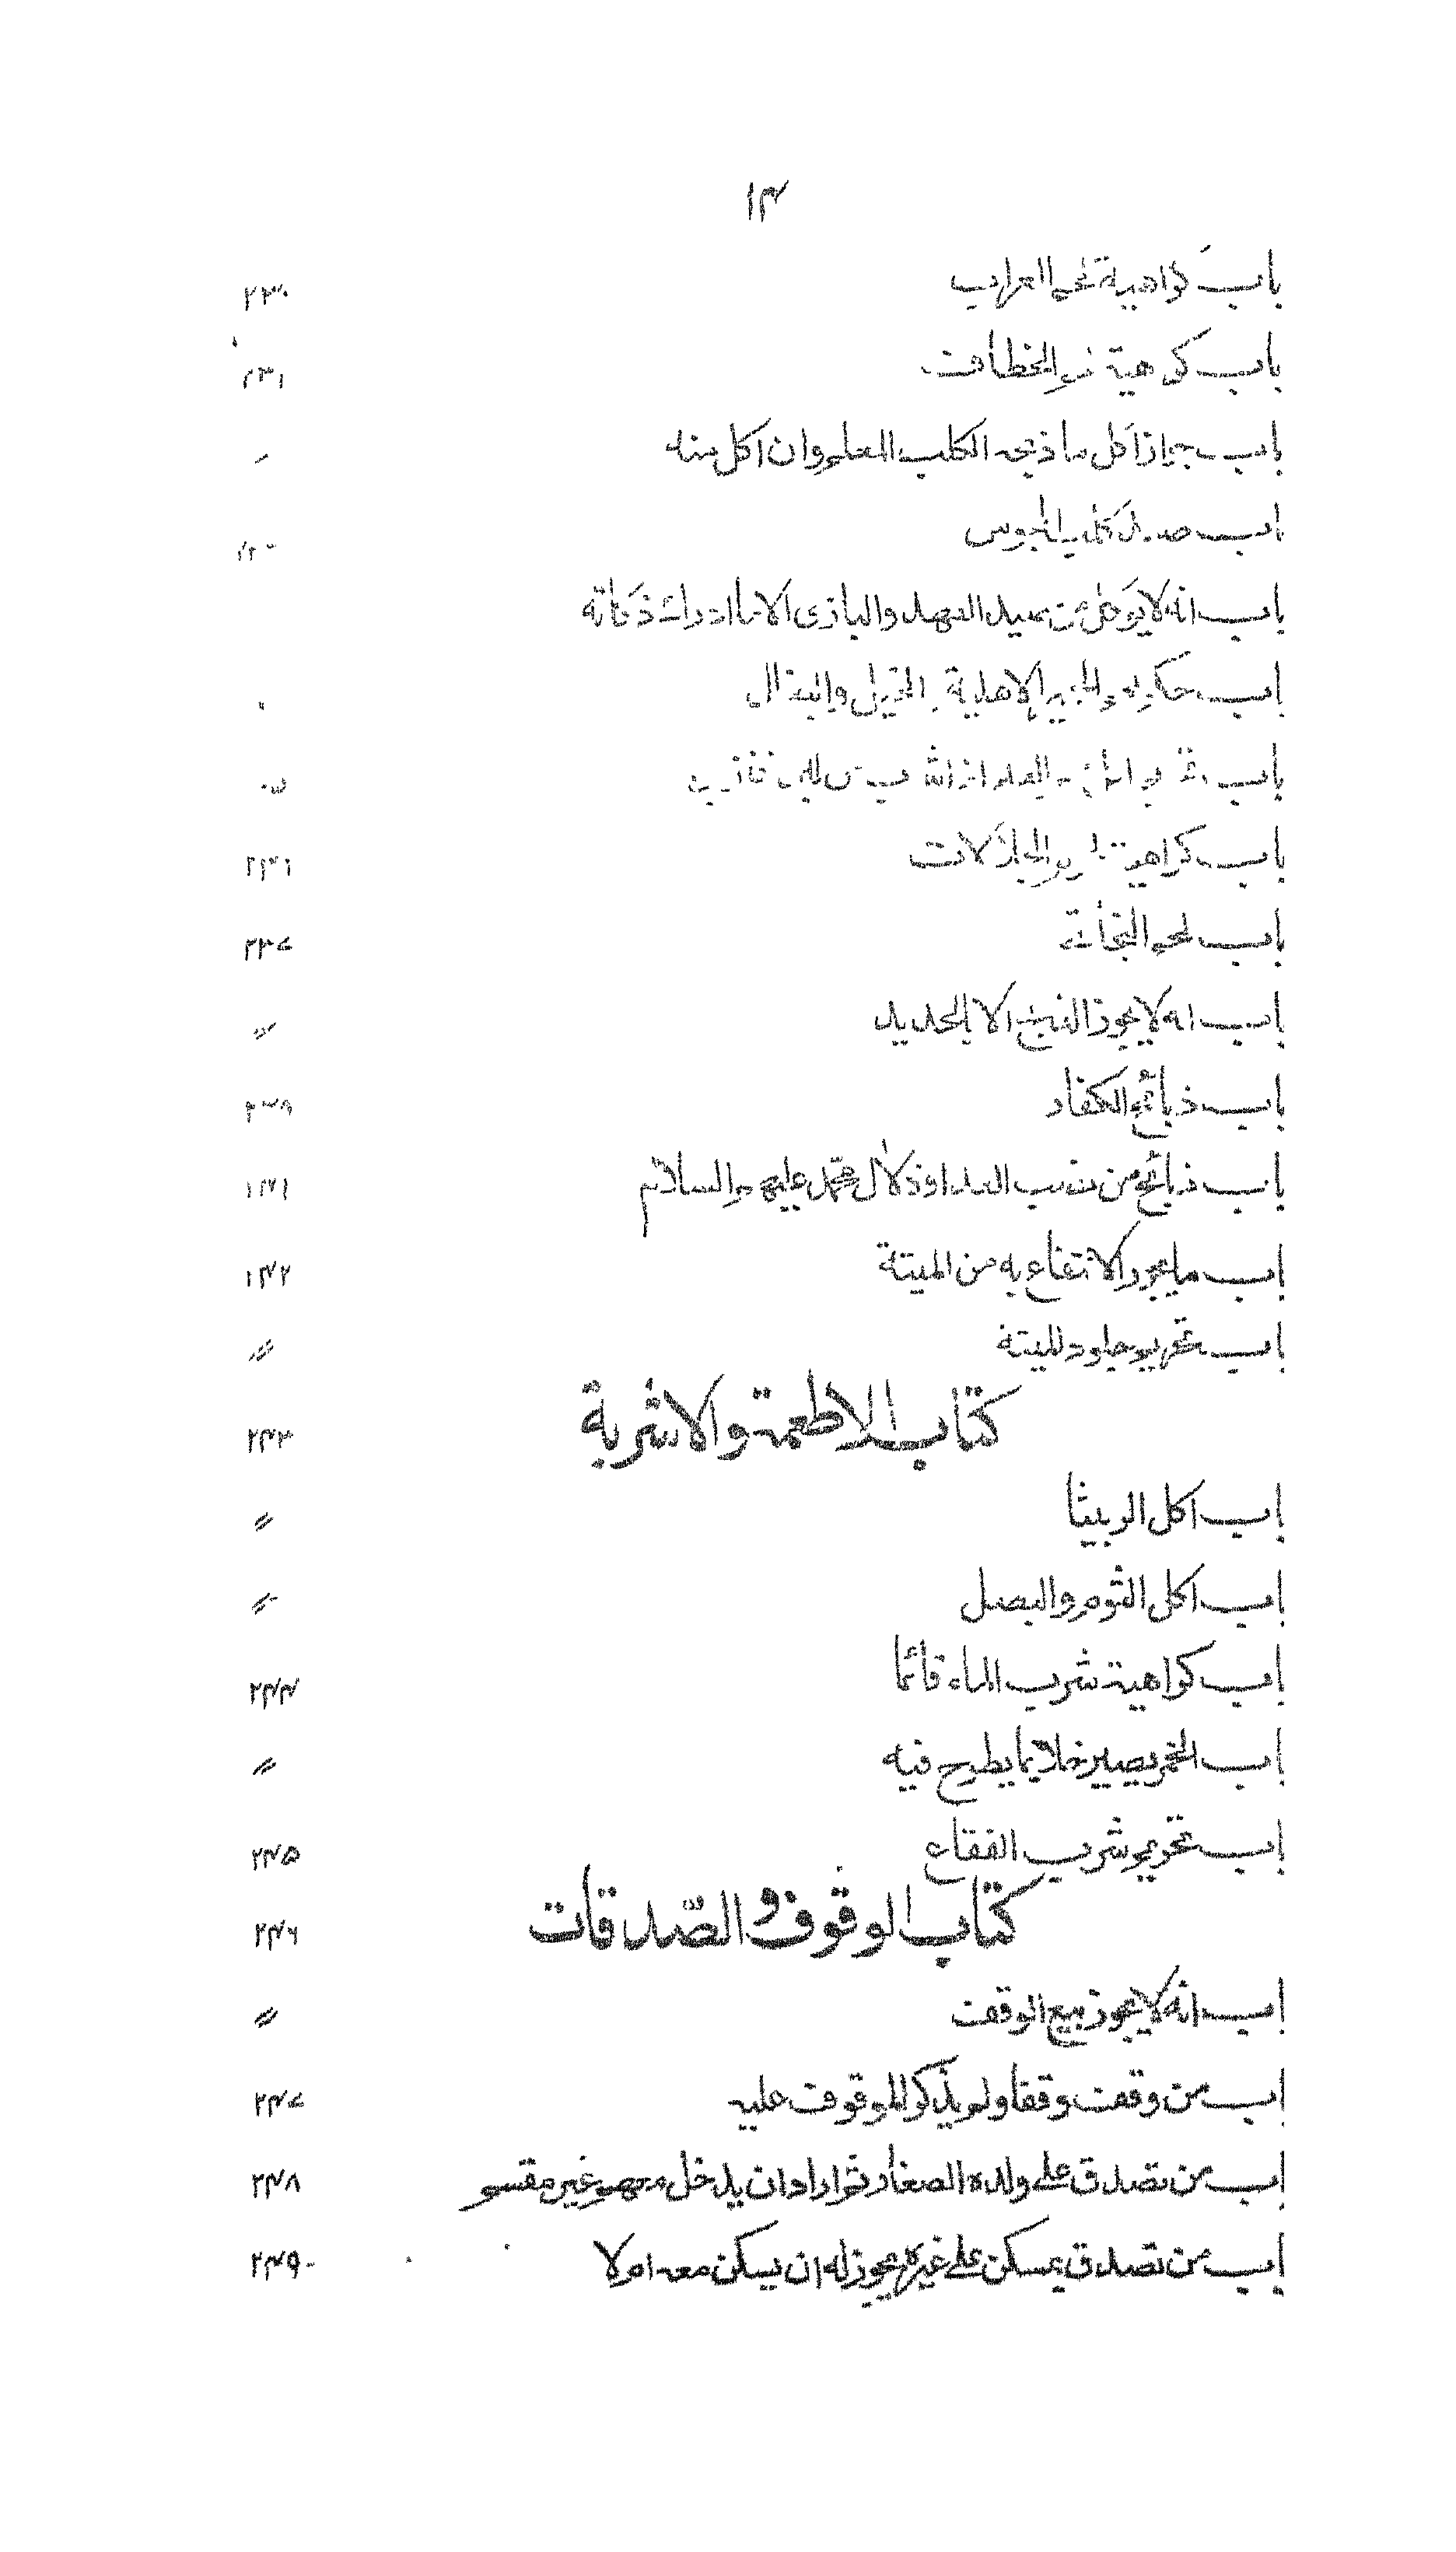 ۱۴
باب كراهية لحم الغراب ۲۳۰
باب كراهية لحم الخطاف ۲۳۱
باب جواز اكل ما ذبحه الكلب المعلم وان اكل منه
باب صيد كلب المجوس
باب انه لا يوكل من صيد الفهد والبازى الا ما ادرك ذكاته
باب حكم لحم الحمير الاهلية والخيل والبغال
باب
باب كراهية لحوم الجلالات ۲۳۶
باب لحم البخاتى ۲۳۷
باب انه لا يجوز الذبح الا بالحديد "
باب ذبائح الكفار ۲۳۸
باب ذبائح من نصب العداوة لآل محمد عليهم السلام ۲۴۱
باب ما يجوز الانتفاع به من الميتة ۲۴۲
باب تحريم جلود الميتة "
كتاب الاطعمة والاشربة ۲۴۳
باب اكل الربيثا "
باب اكل الثوم والبصل "
باب كراهية شرب الماء قائما ۲۴۴
باب الخمر يصير خلا بما يطرح فيه "
باب تحريم شرب الفقاع ۲۴۵
كتاب الوقوف و الصّدقات ۲۴۶
باب انه لا يجوز بيع الوقف "
باب من وقف وقفا ولم يذكر الموقوف عليه ۲۴۷
باب من تصدق على ولده الصغار ثم اراد ان يدخل معهم غيرهم قسم ۲۴۸
باب من تصدق بمسكن على غيره يجوز له ان يسكن معه ام لا ۲۴۹